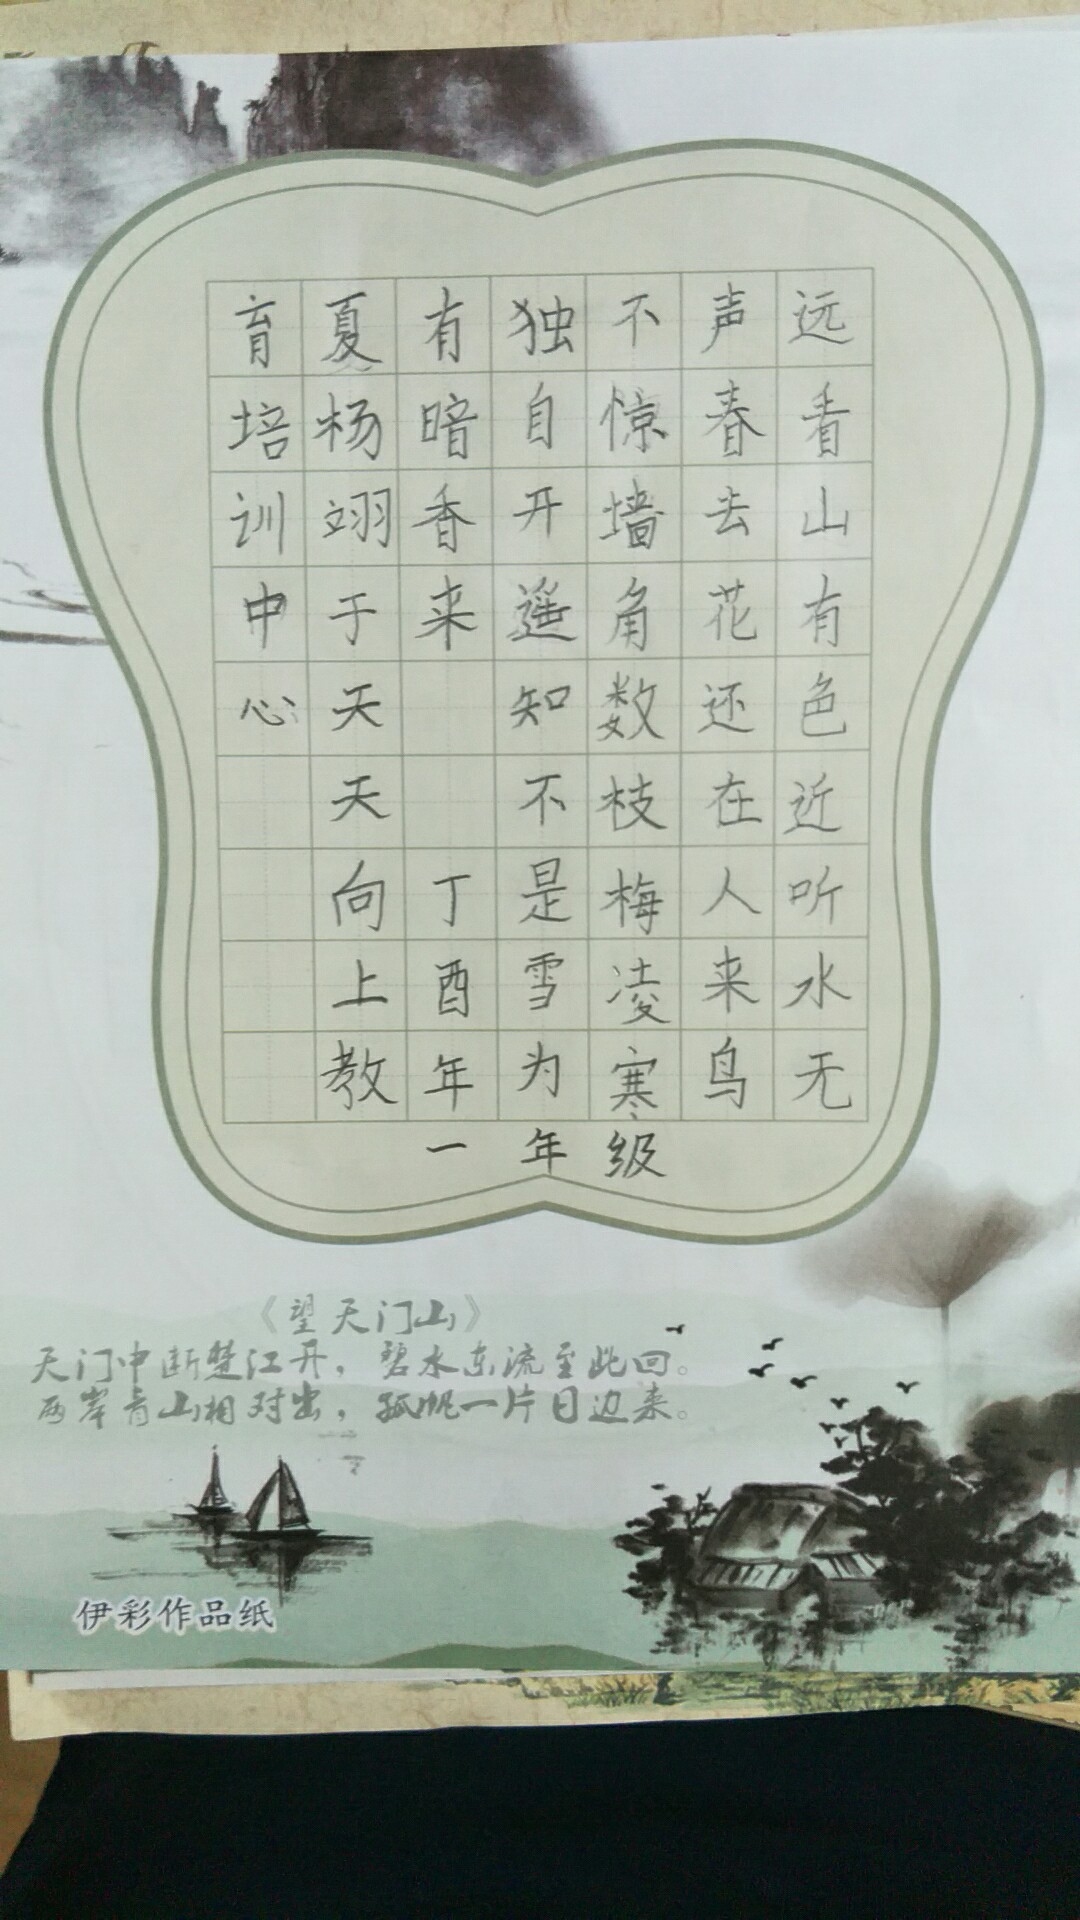 远看山有色近听水无
声春去花还在人来鸟
不惊墙角数枝梅凌寒
独自开遥知不是雪为
有暗香来 丁酉年
夏杨翊于天天向上教
育培训中心
一年级
《望天门山》
天门中断楚江开，碧水东流至此回。
两岸青山相对出，孤帆一片日边来。
伊彩作品纸